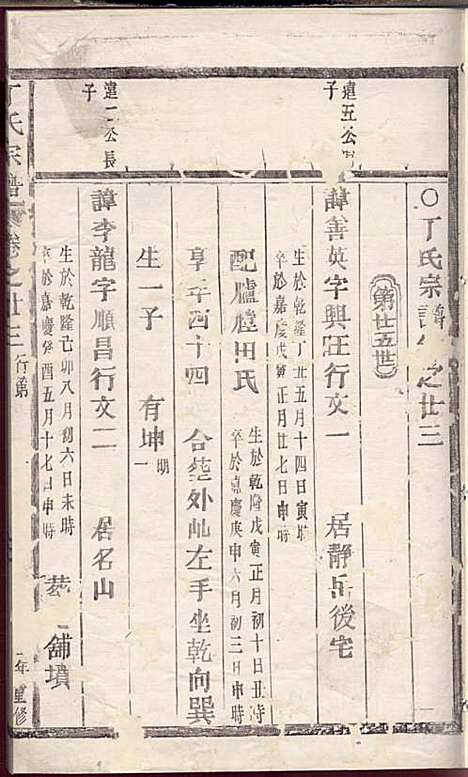 ○丁氏宗譜卷之廿三
第廿五世
違五公
子
諱善英字興旺行文一 居靜岳後宅
生於乾隆丁丑五月十四日寅時
卒於嘉慶戊寅正月廿七日申時
配臚膛田氏
生於乾隆戊寅正月初十日丑時
卒於嘉慶庚申六月初三日申時
享年四十四 合葬外屾左手坐乾向巽
生一子 有坤 明一
違二公長
子
諱李龍字順昌行文二 居名山
生於乾隆己卯八月初六日未時
卒於嘉慶癸酉五月十七日申時
葬 舖墳
丁氏宗譜 卷之廿三 行第 年重修